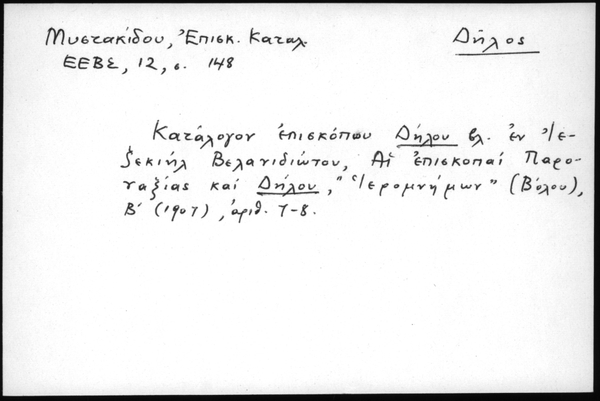 Μυστακίδου, Ἐπισκ. Καταλ.
Δῆλος
ΕΕΒΣ, 12, σ. 148
Κατάλογον ἐπισκόπων Δήλου βλ. ἐν Ἰε-
ζεκιήλ Βελανιδιώτου, Αἱ ἐπισκοπαί Παρο-
ναξίας καί Δήλου, "Ἱερομνήμων" (Βόλου),
Β΄ (1907), ἀριθ. 7-8.